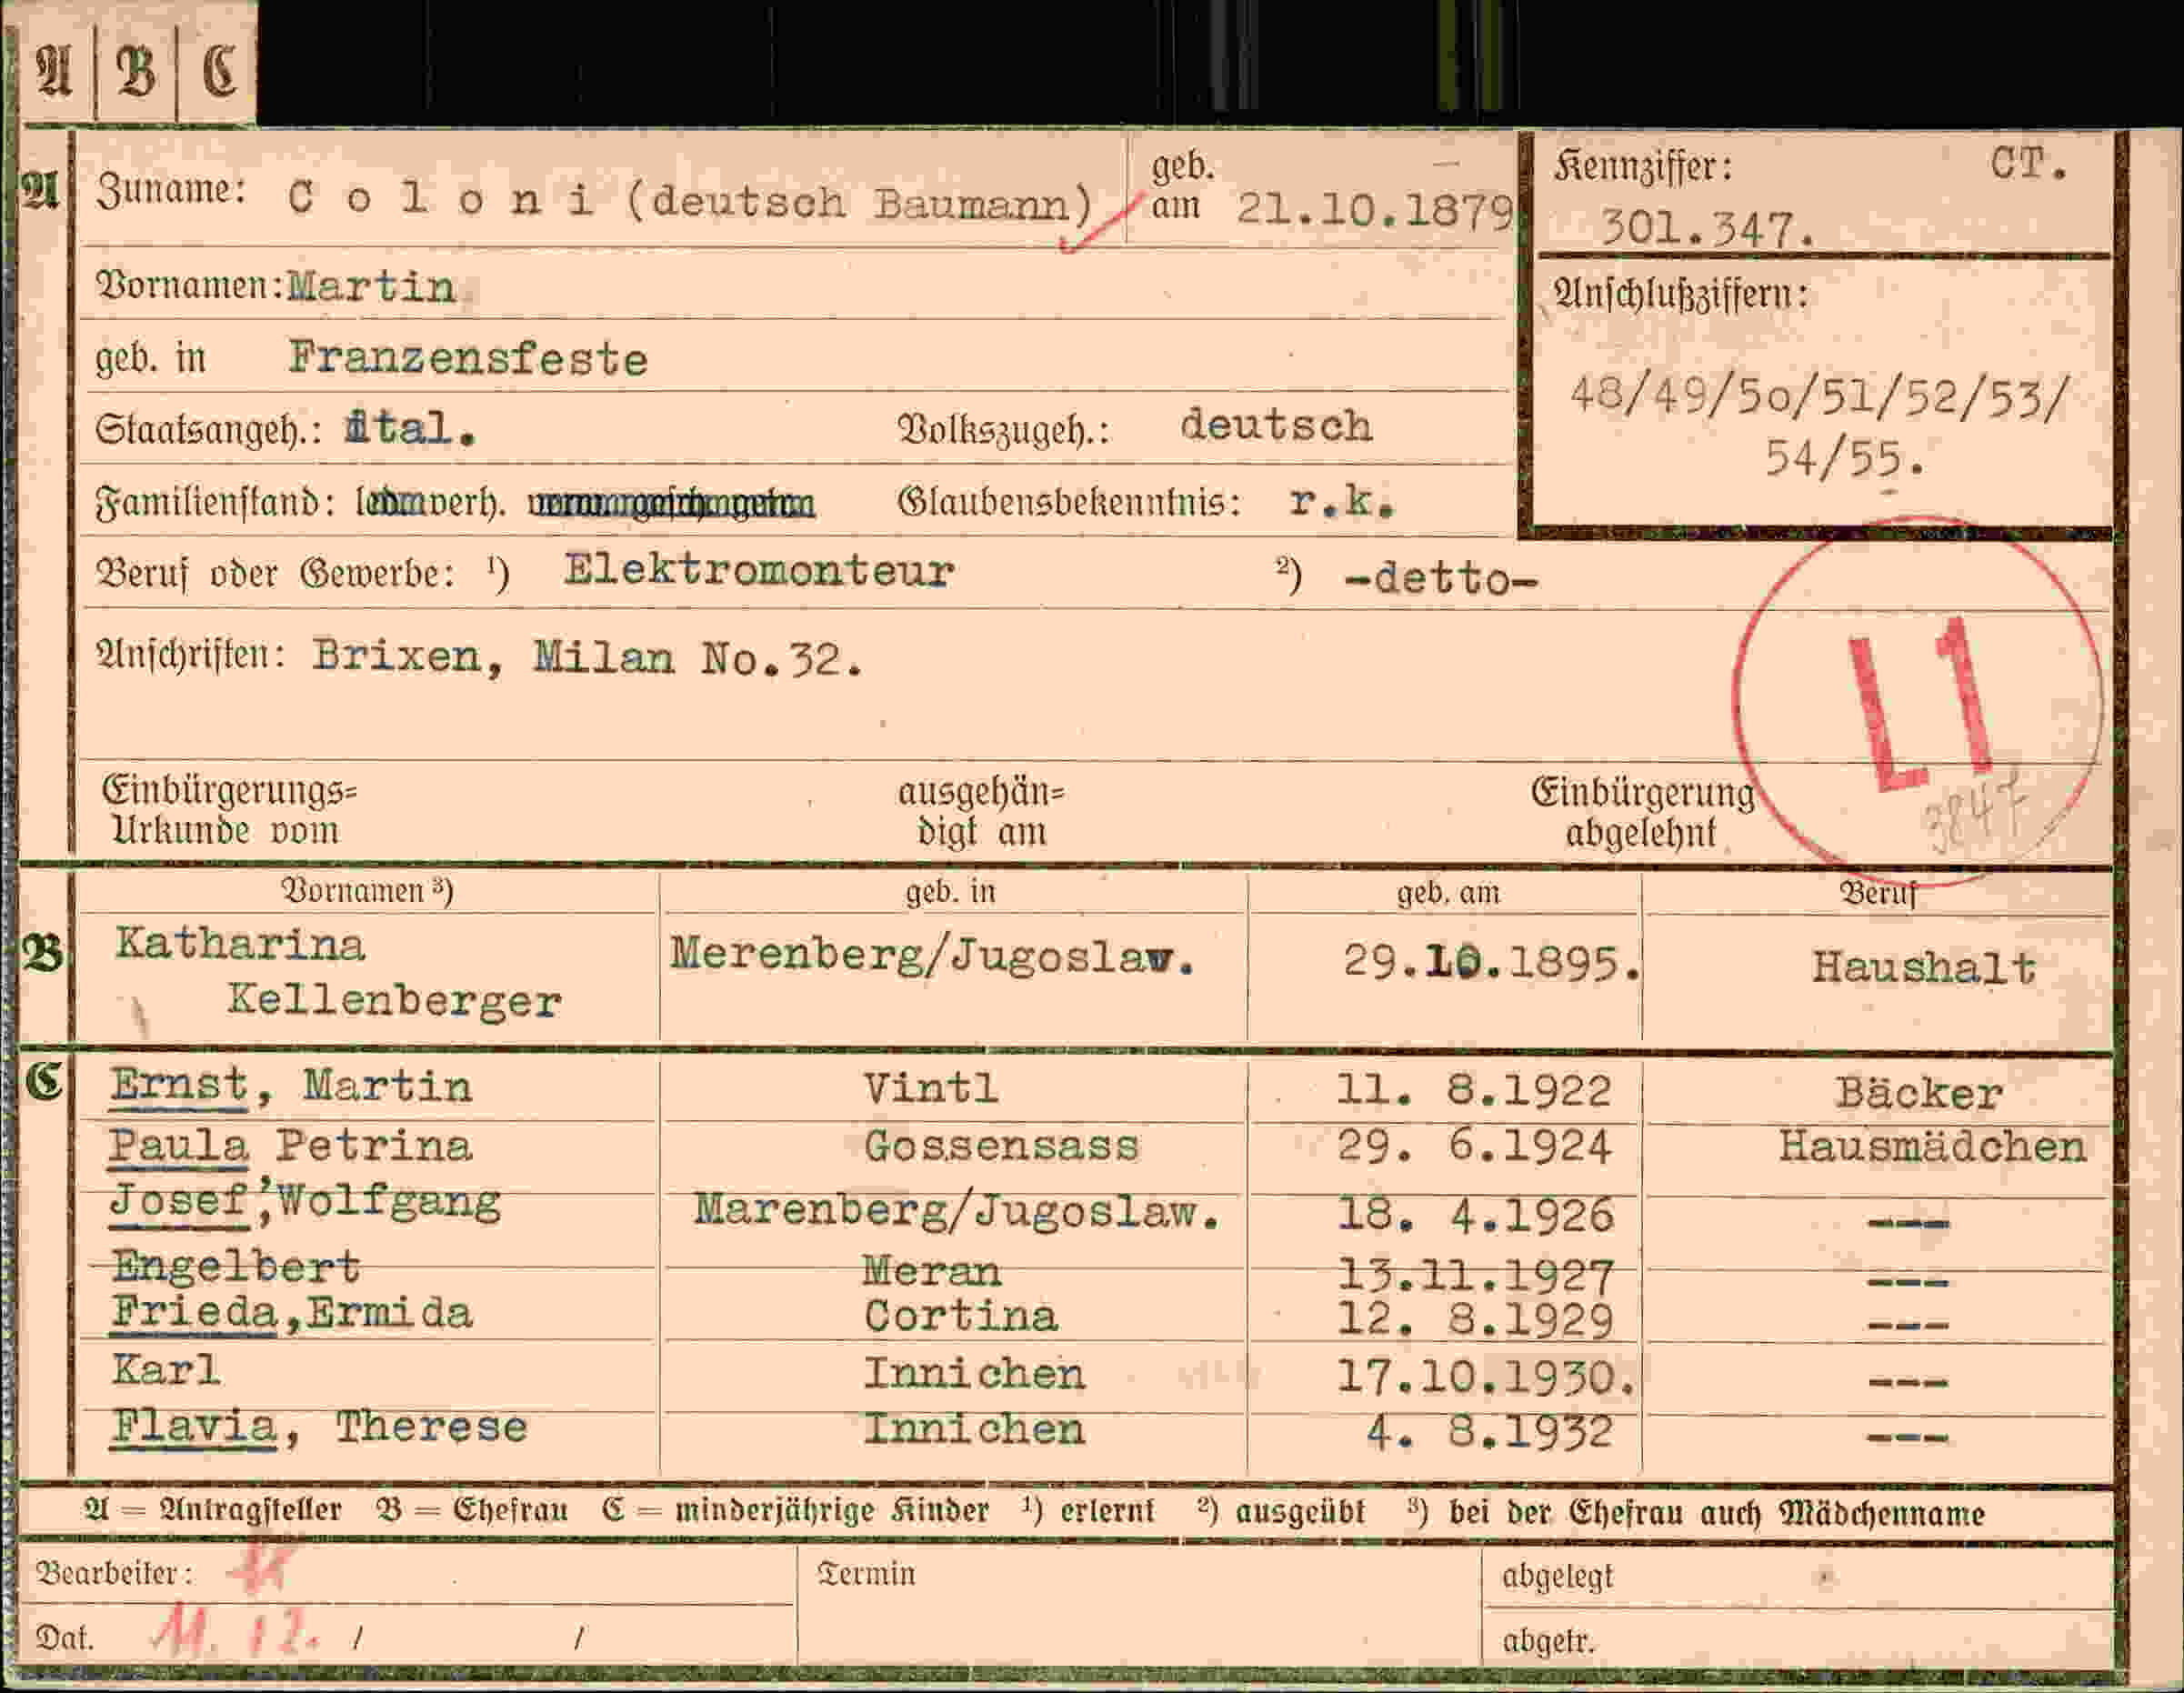 A | B | C
A Zuname: C o l o n i (deutsch Baumann) geb. am 21.10.1879
Kennziffer: CT.
301.347.
Vornamen: Martin
Anschlußziffern:
48/49/5o/51/52/53/
54/55.
geb. in Franzensfeste
Staatsangeh.: ital. Volkszugeh.: deutsch
Familienstand: verh. Glaubensbekenntnis: r.k.
Beruf oder Gewerbe: ¹) Elektromonteur ²) -detto-
Anschriften: Brixen, Milan No.32.
L1
3847
Einbürgerungs= ausgehän= Einbürgerung
Urkunde vom digt am abgelehnt
Vornamen ³) geb. in geb. am Beruf
B Katharina Merenberg/Jugoslav. 29.10.1895. Haushalt
Kellenberger
C Ernst, Martin Vintl 11. 8.1922 Bäcker
Paula Petrina Gossensass 29. 6.1924 Hausmädchen
Josef,Wolfgang Marenberg/Jugoslaw. 18. 4.1926 ---
Engelbert Meran 13.11.1927 ---
Frieda,Ermida Cortina 12. 8.1929 ---
Karl Innichen 17.10.1930. ---
Flavia, Therese Innichen 4. 8.1932 ---
A = Antragsteller B = Ehefrau C = minderjährige Kinder ¹) erlernt ²) ausgeübt ³) bei der Ehefrau auch Mädchenname
Bearbeiter: Termin abgelegt
Dat. 11. 12. / / abgetr.